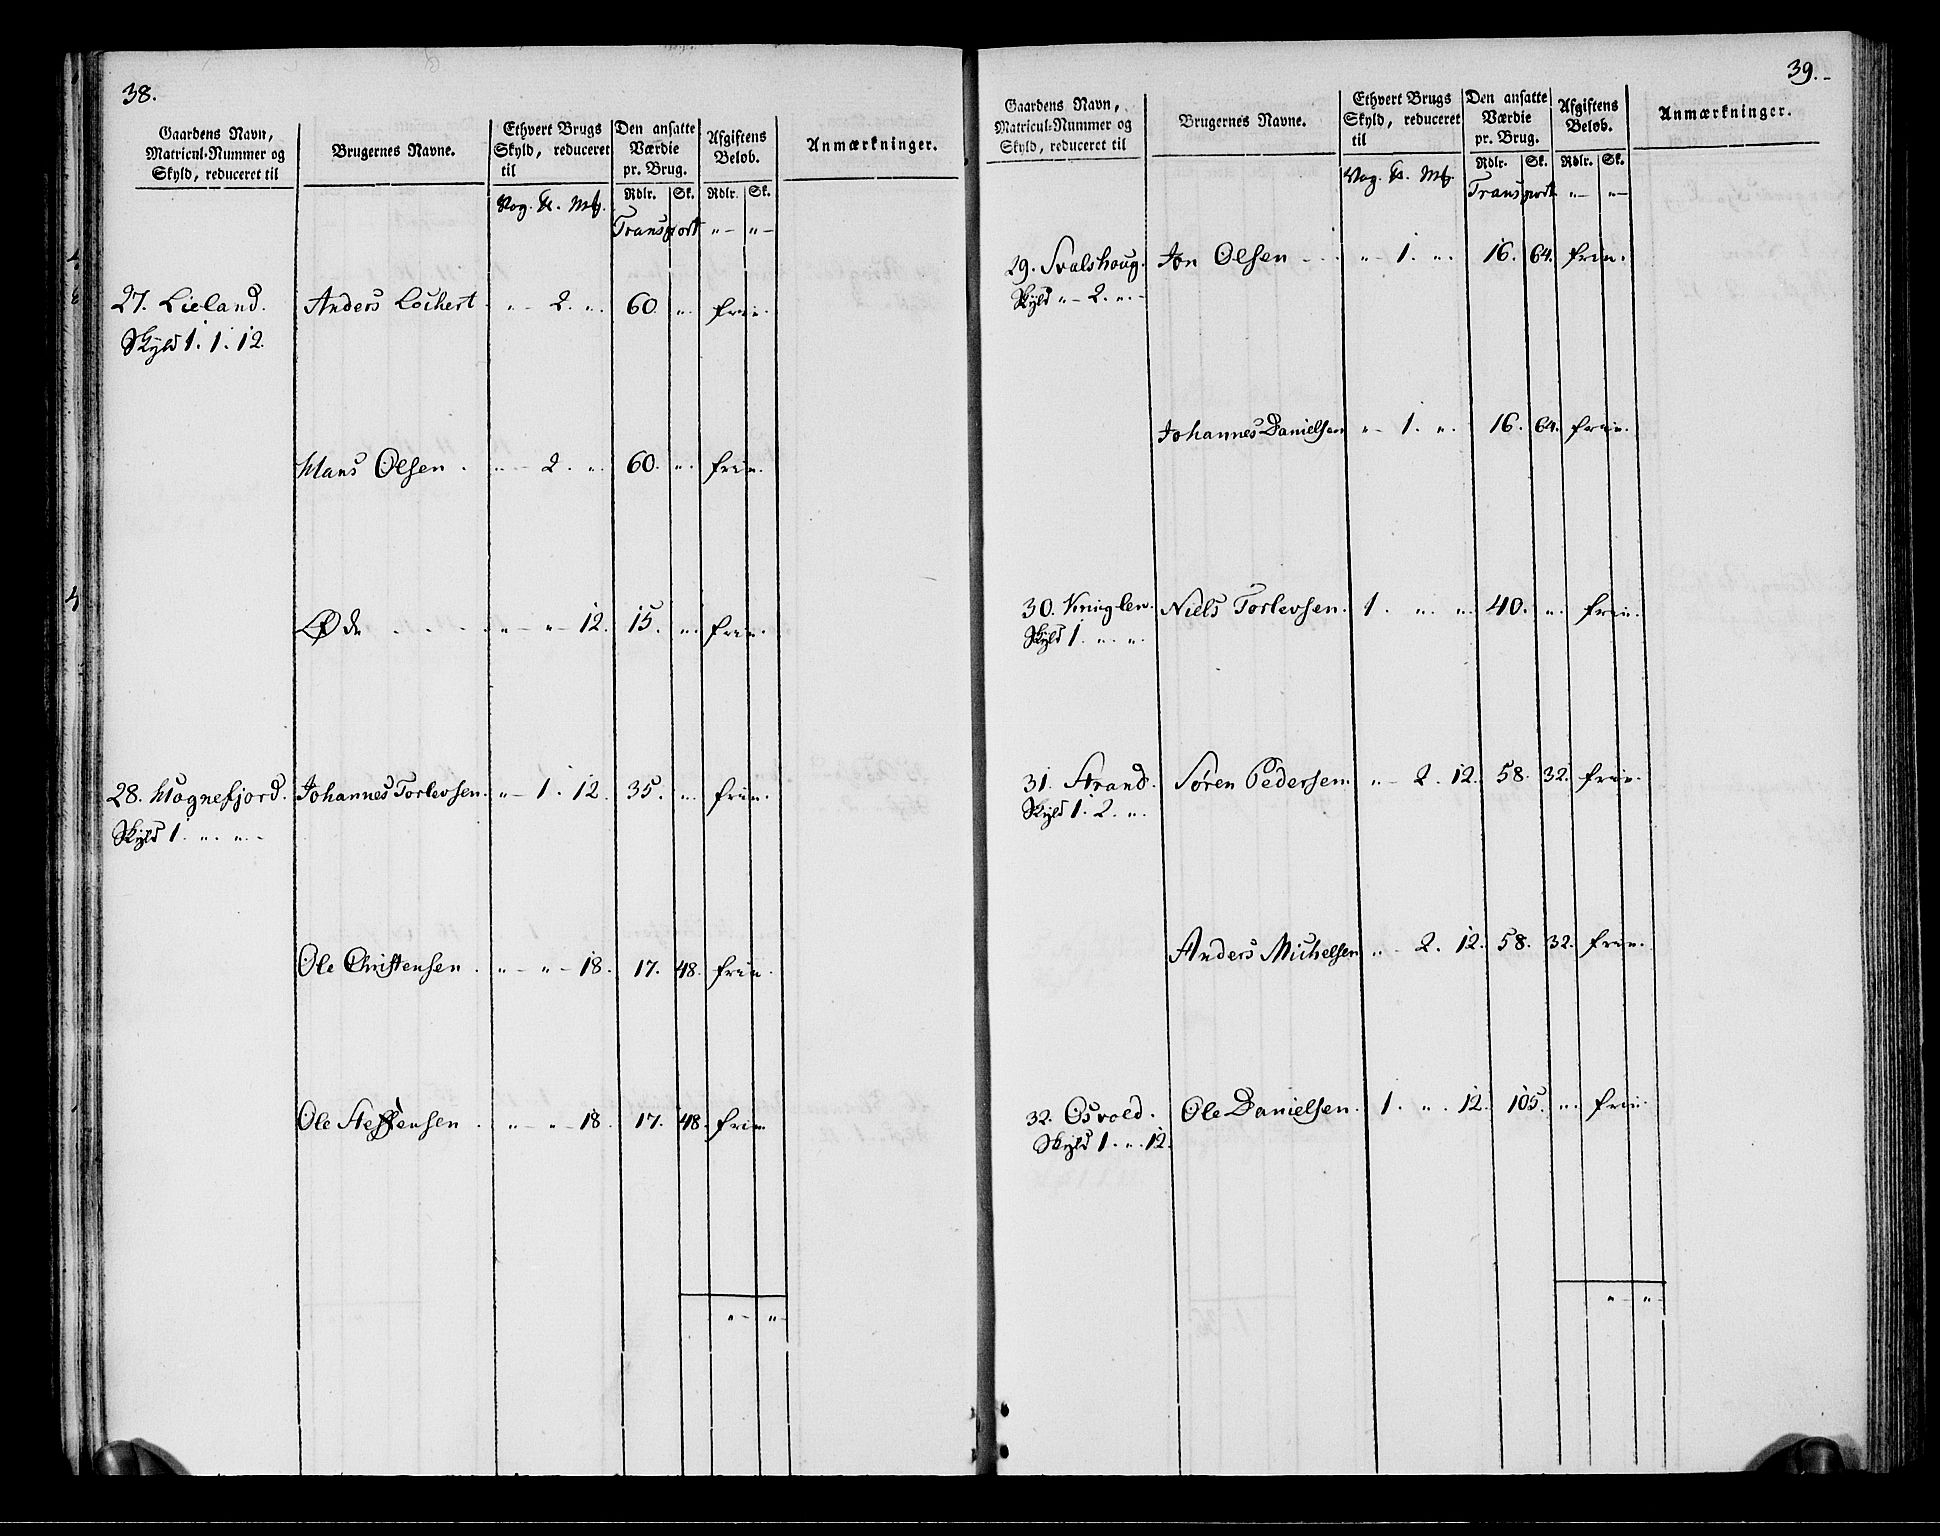 38.
Gaardens Navn, Matricul-Nummer og Skyld, reduceret til
Brugernes Navne.
Ethvert Brugs Skyld, reduceret til
Den ansatte Værdie pr. Brug.
Afgiftens Beløb.
Anmærkninger.
Vog. ℔. Mk. Rdlr. Sk. Rdlr. Sk.
Transport „ – „ –
27. Lieland. Anders Lockert. „ – 2. „. 60. „. frie.
Skyld 1. 1. 12.
Hans Olsen. „ – 2. „. 60. „. frie.
Øde . . . „ – „ – 12. 15. „. frie.
28. Hognefjord. Johannes Torlevsen. „ – 1. 12. 35. „. frie.
Skyld 1. „. „. –
Ole Christensen. „ – „ – 18. 17. 48. frie.
Ole Steffensen. „ – „ – 18. 17. 48. frie
„ – „ –
39.
Gaardens Navn, Matricul-Nummer og Skyld, reduceret til
Brugernes Navne.
Ethvert Brugs Skyld, reduceret til
Den ansatte Værdie pr. Brug.
Afgiftens Beløb.
Anmærkninger.
Vog. ℔. Mk. Rdlr. Sk. Rdlr. Sk.
Transport „ – „ –
29. Svalshoug. Jon Olsen „ – 1. „. 16. 64. frie.
Skyld „ – 2. „. –
Johannes Danielsen „ – 1. „. 16. 64. frie.
30. Niels Torlevsen. 1. „. „. 40. „. frie.
Skyld 1. „. „.
31. Strand. Søren Pedersen. „ – 2. 12. 58. 32. frie.
Skyld 1. 2. „.
Anders Michelsen „ – 2. 12. 58. 32. frie.
32. Osvold. Ole Danielsen. 1. „. 12. 105. „. frie.
Skyld 1. „. 12.
„ – „ –